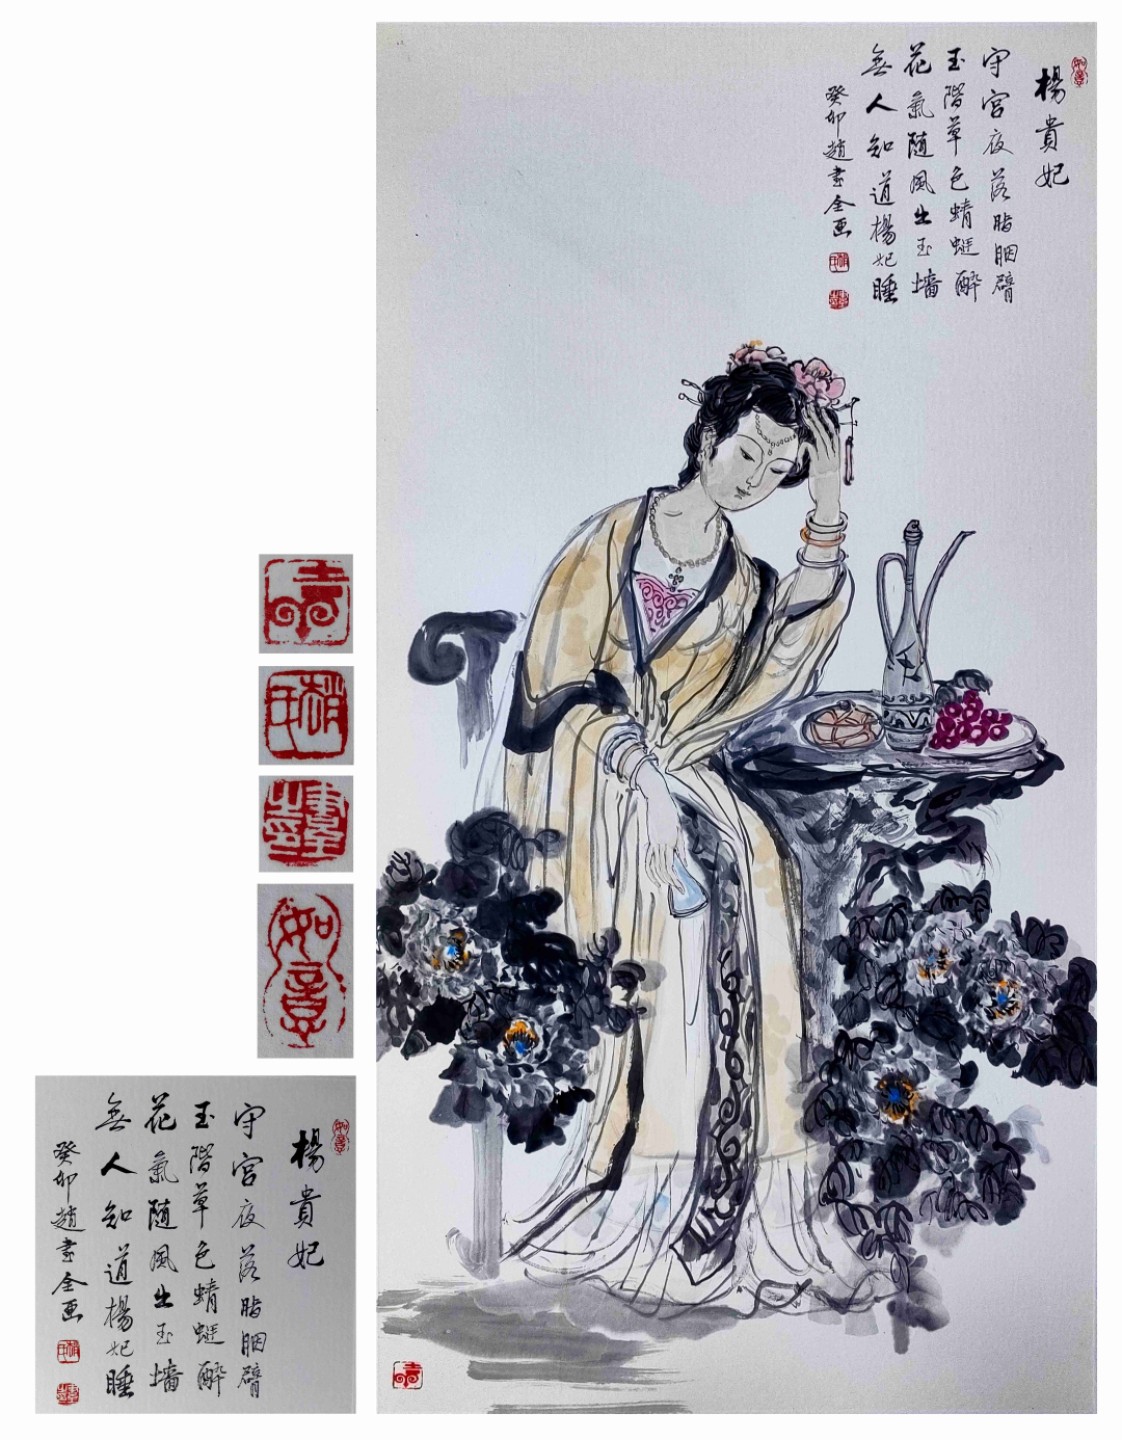 楊貴妃
守宮夜落胭脂臂
玉階草色蜻蜓醉
花氣随風出玉墻
無人知道楊妃睡
癸卯趙書全画
如意
如意
楊貴妃
守宮夜落脂胭臂
玉階草色蜻蜓醉
花氣随風出玉墻
無人知道楊妃睡
癸卯趙書全画
如意